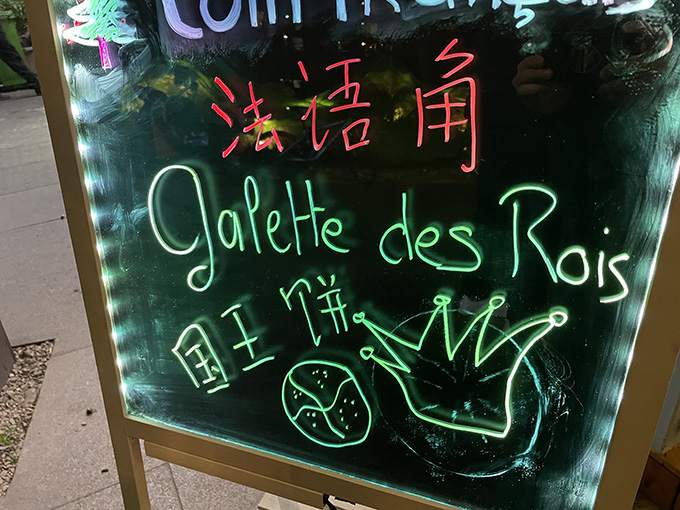 Coin Français
法语角
galette des Rois
国王饼